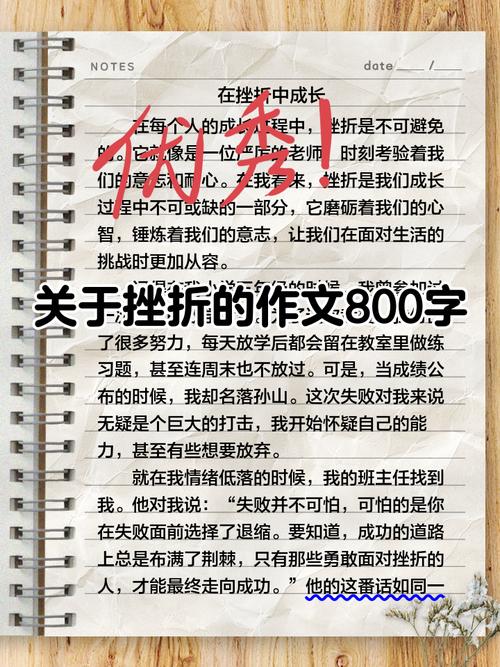 NOTES
date ____ / ____
在挫折中成长
优秀！
在每个人的成长过程中，挫折是不可避免
的。它就像是一位严厉的老师，时刻考验着我
们的意志和耐心。在我看来，挫折是我们成长
过程中不可或缺的一部分，它磨砺着我们的心
智，锤炼着我们的意志，让我们在面对生活的
挑战时更加从容。
的时候，我曾参加过
关于挫折的作文800字
了很多努力，每天放学后都会留在教室里做练
习题，甚至连周末也不放过。可是，当成绩公
布的时候，我却名落孙山。这次失败对我来说
无疑是个巨大的打击，我开始怀疑自己的能
力，甚至有些想要放弃。
就在我情绪低落的时候，我的班主任找到
我。他对我说：“失败并不可怕，可怕的是你
在失败面前选择了退缩。要知道，成功的道路
上总是布满了荆棘，只有那些勇敢面对挫折的
人，才能最终走向成功。”他的这番话如同一